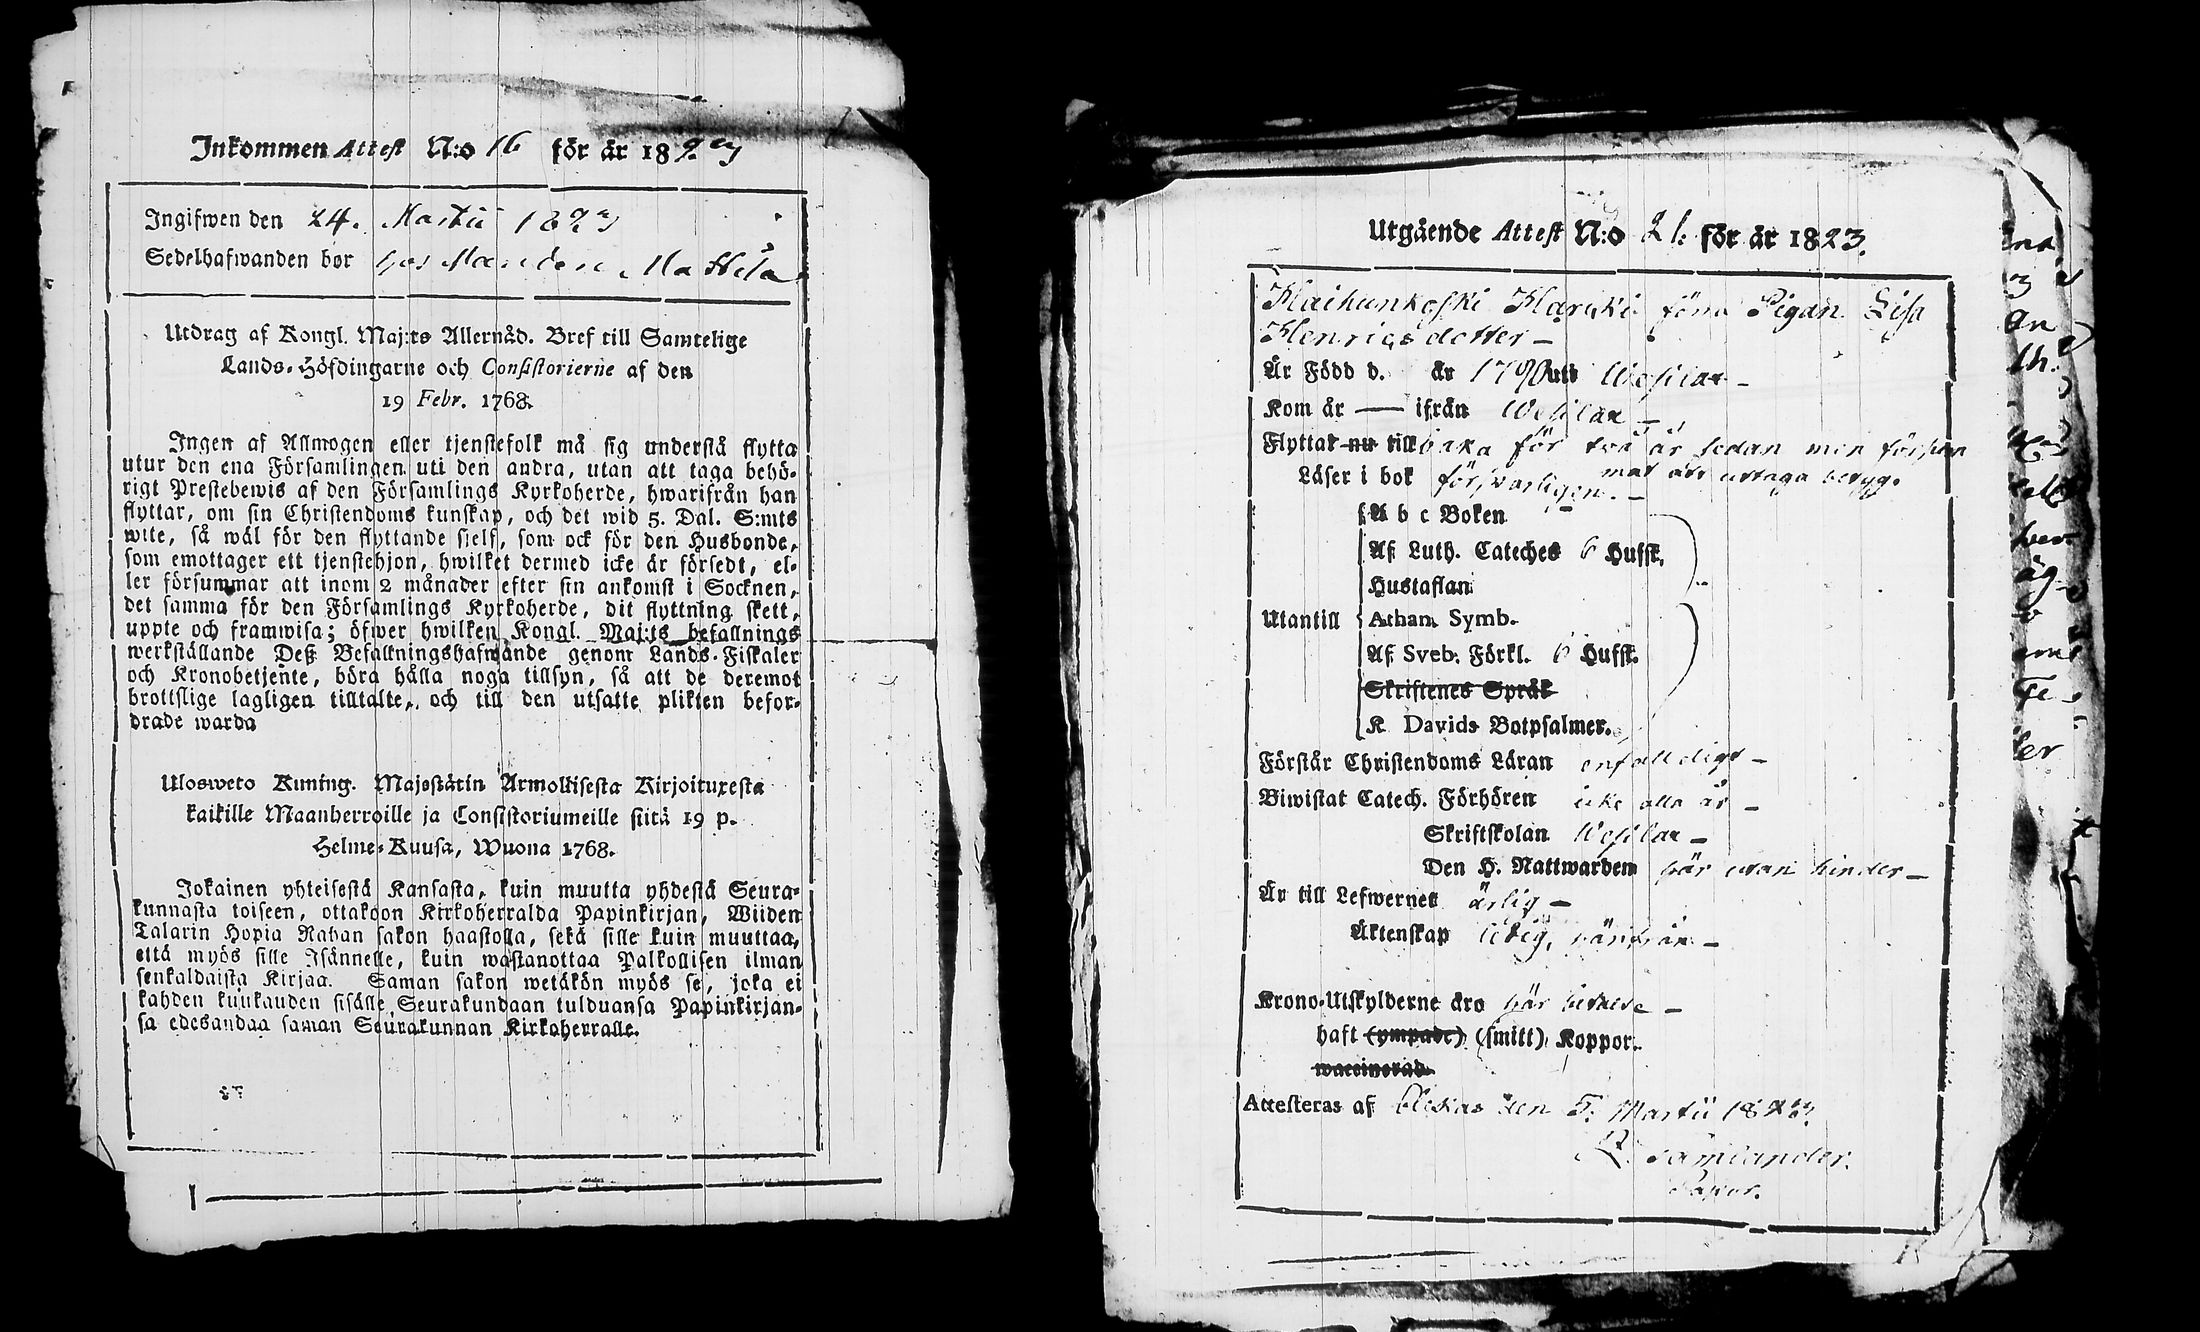 Inkommen Attest N:o 16 för år 1823
Ingifwen den 24. Martii 1823
Sedelhafwanden bor hos Manden Mattila
Utdrag af Kongl. Maj:ts Allernåd. Bref till Samtelige
Lands-Höfdingarne och Consistorierne af den
19 Febr. 1768.
Ingen af Allmogen eller tjenstefolk må sig understå flytta
utur den ena Församlingen uti den andra, utan att taga behö-
rigt Prestebewis af den Församlings Kyrkoherde, hwarifrån han
flyttar, om sin Christendoms kunskap, och det wid 5. Dal. S:mts
wite, så wäl för den flyttande sjelf, som ock för den Husbonde,
som emottager ett tjenstehjon, hwilket dermed icke är försedt, el-
ler försummar att inom 2 månader efter sin ankomst i Socknen,
det samma för den Församlings Kyrkoherde, dit flyttning skett,
uppte och framwisa; öfwer hwilken Kongl. Maj:ts befallnings
werkställande Deß Befallningshafwande genom Lands-Fiskaler
och Kronobetjente, böra hålla noga tillsyn, så att de deremot
brottslige lagligen tilltalte, och till den utsatte plikten befor-
drade warda
Ulosweto Kuning. Majestätin Armollisesta Kirjoituxesta
kaikille Maanherroille ja Consistoriumeille siitä 19 p.
Helme-Kuusa, Wuona 1768.
Jokainen yhteisestä Kansasta, kuin muutta yhdestä Seura-
kunnasta toiseen, ottakoon Kirkoherralda Papinkirjan, Wiiden
Talarin Hopia Rahan sakon haastolla, sekä sille kuin muuttaa,
että myös sille Isännelle, kuin wastanottaa Palkollisen ilman
senkaldaista Kirjaa. Saman sakon wetäkön myös se, joka ei
kahden kuukauden sisälle Seurakundaan tulduansa Papinkirjan-
sa edesandaa saman Seurakunnan Kirkoherralle.
Utgående Attest N:o 21. för år 1823.
Pigan Lisa
Henricsdotter
Är Född d. år 1790 uti Wesilax
Kom år — ifrån Wesilax
Flyttat nu till för två år sedan men försum
mat att uttaga betyg.
Läser i bok förswarligen.
A b c Boken
Af Luth. Cateches 6 Hufst.
Hustaflan
Utantill Athan. Symb.
Af Sveb. Förkl. 6 Hufst.
Skriftenes Språk
K Davids Botpsalmer.
Förstår Christendoms Läran enfalldigt
Biwistat Catech. Förhören icke alla år
Skriftskolan Wesilax
Den H. Nattwarden här utan hinder
Är till Lefwernet ärlig
Äktenskap ledig, härifrån
Krono-Utskylderne äro här betalde
haft (ympade) (smitt) Koppor.
waccinerad
Attesteras af den 5. Martii 1823.
Pastor.